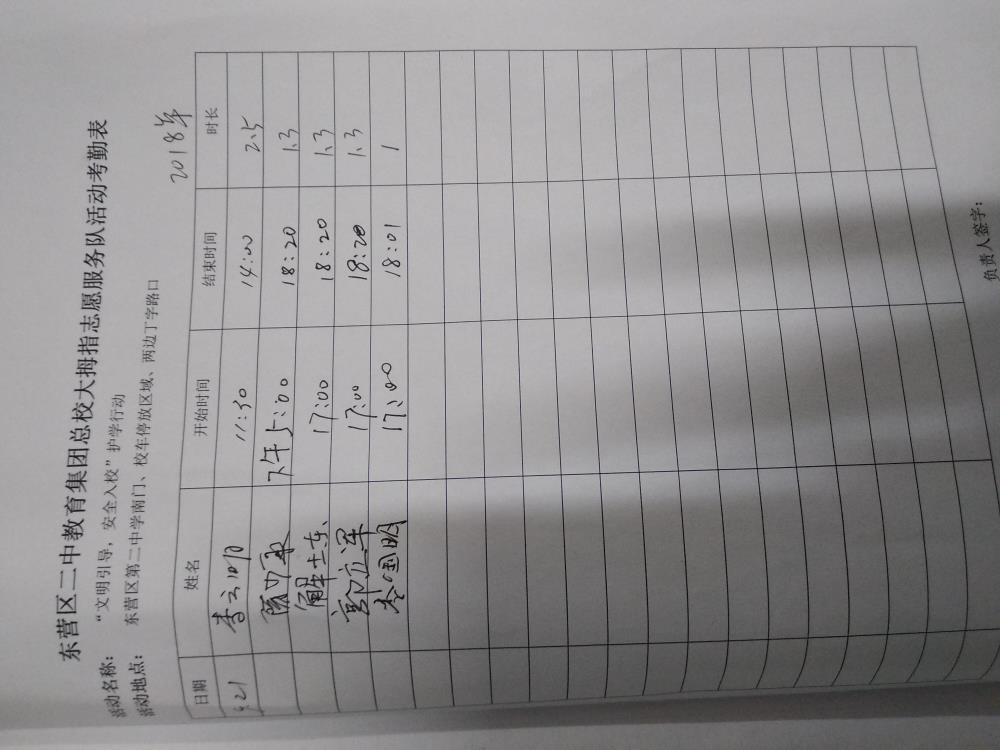 东营区二中教育集团总校大拇指志愿服务队活动考勤表
活动名称： “文明引导，安全入校”护学行动
活动地点： 东营区第二中学南门、校车停放区域、两边丁字路口
2018年
日期 姓名 开始时间 结束时间 时长
.21 李云 11:30 14:00 2.5
下午5:00 18:20 1.3
解士东 17:00 18:20 1.3
郭立军 17:00 18:20 1.3
李国明 17:00 18:01 1
负责人签字：